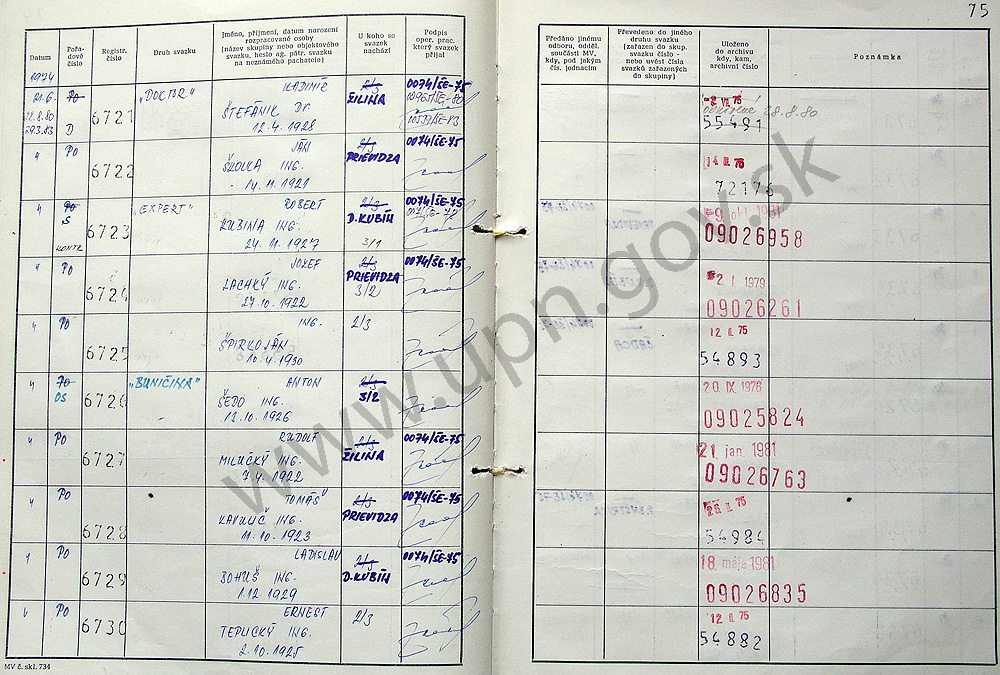 75
Datum
Pořadové číslo
Registr. číslo
Druh svazku
Jméno, příjmení, datum narození
rozpracované osoby
(název skupiny nebo objektového
svazku, heslo ag. pátr. svazku
na neznámého pachatele)
U koho se
svazek
nachází
Podpis
oper. prac.
který svazek
přijal
Předáno jinému
odboru, odděl.
součásti MV,
kdy, pod jakým
čís. jednacím
Převedeno do jiného
druhu svazku
(zařazen do skup.
svazku číslo -
nebo uvést čísla
svazků zařazených
do skupiny)
Uloženo
do archivu
kdy, kam,
archivní číslo
Poznámka
1974
21.6. PO 6721 "DOCTOR" VLADIMÍR 2/3 0074/ŠE-75
28.8.80 ŠTEFÁNIK Dr. ŽILINA
29.3.83 D 12.4.1928
2 VI. 75
28.8.80
55491
" PO 6722 JÁN 2/3 0074/ŠE-75
ŠKOVKA ING. PRIEVIDZA
14.11.1921
14 II. 75
72176
" PO 6723 "EXPERT" ROBERT 2/3 0074/ŠE-75
S KUBINA ING. D. KUBÍN
KONTR. 24.11.1927 3/1
9. okt. 1981
09026958
" PO 6724 JOZEF 2/3 0074/ŠE-75
LACHKÝ ING. PRIEVIDZA
27.10.1922 3/2
2. I. 1979
09026261
" PO 6725 ING. 2/3
ŠPIRKO JÁN
10.4.1930
12 II. 75
54893
" PO 6726 "BUNIČINA" ANTON 2/3
OS ŠEDO ING. 3/2
12.10.1926
20. IX. 1976
09025824
" PO 6727 RUDOLF 2/3 0074/ŠE-75
MILUČKÝ ING. ŽILINA
7.4.1922
21. jan. 1981
09026763
" PO 6728 TOMÁŠ 2/3 0074/ŠE-75
KAVULIČ ING. PRIEVIDZA
11.10.1923
II. 75
54984
" PO 6729 LADISLAV 2/3 0074/ŠE-75
BOHUŠ ING. D. KUBÍN
1.12.1929
18. mája 1981
09026835
" PO 6730 ERNEST 2/3
TEPLICKÝ ING.
2.10.1925
12 II. 75
54882
MV č. skl. 734
www.upn.gov.sk